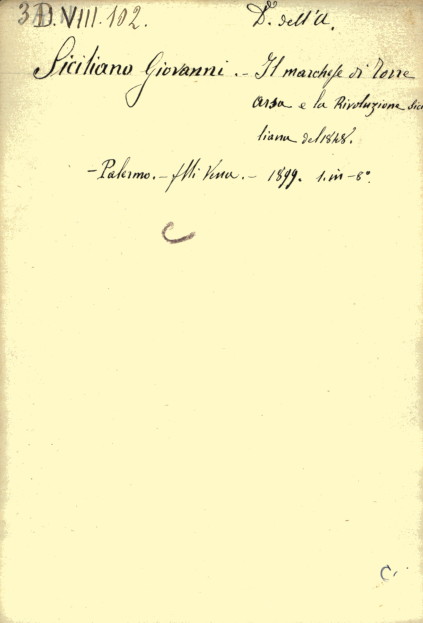 3D.VIII.102. Dº dell'A.
Siciliano Giovanni. - Il marchese di Torre
Arsa e la Rivoluzione sici
liana del 1848.
- Palermo. - f.lli Vena. - 1899. 1. in - 8º.
C
C.